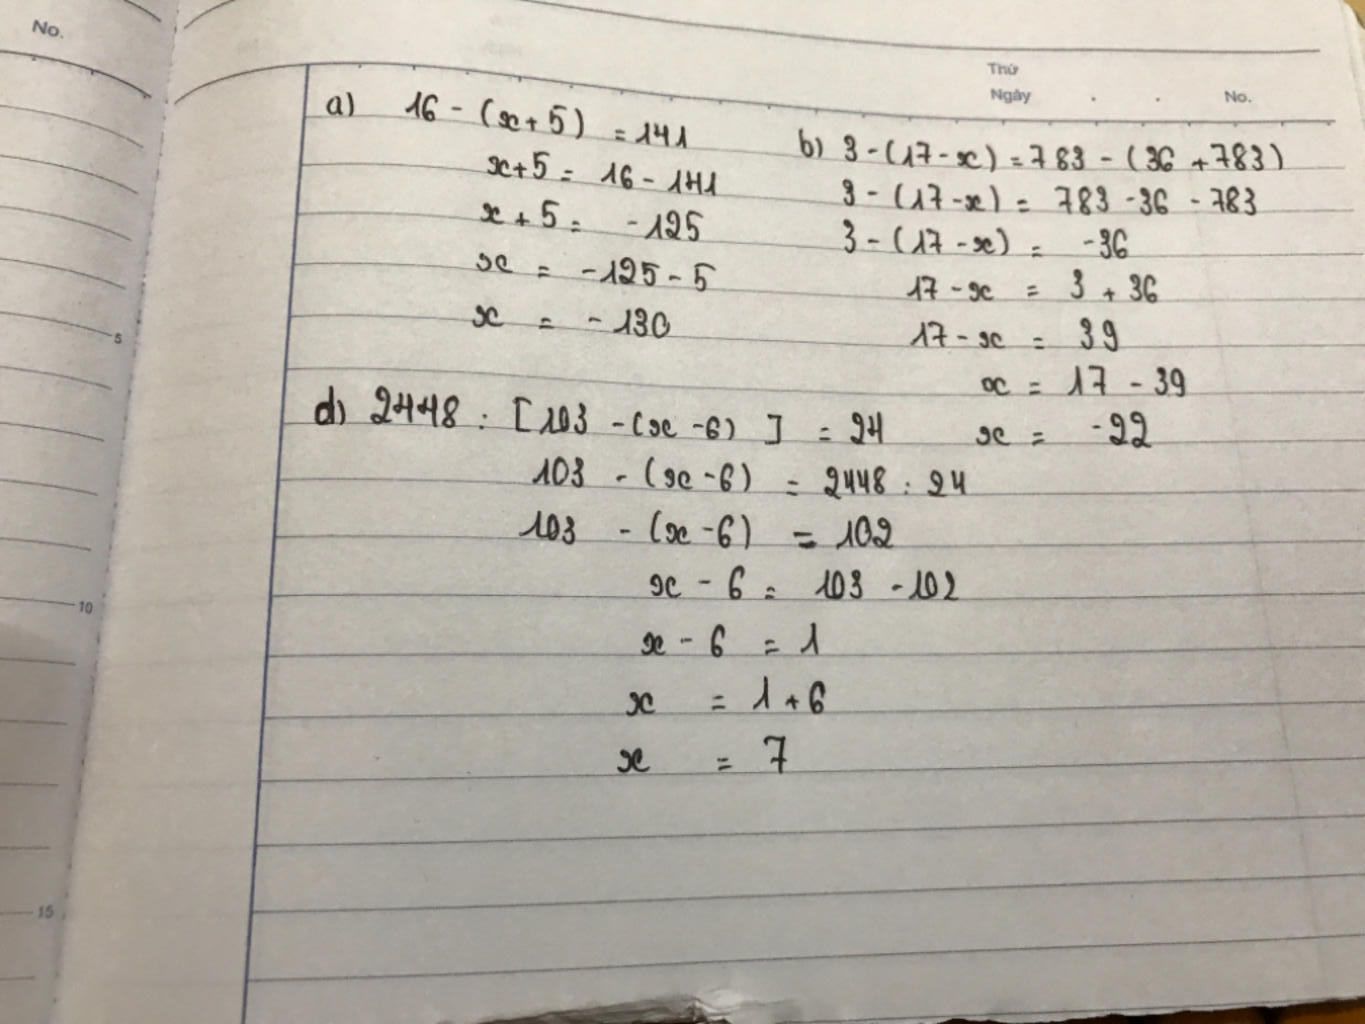 No.
Thứ
Ngày . . No.
a) 16 - (x + 5) = 141
x + 5 = 16 - 141
x + 5 = -125
x = -125 - 5
x = -130
b) 3 - (17 - x) = 783 - (36 + 783)
3 - (17 - x) = 783 - 36 - 783
3 - (17 - x) = -36
17 - x = 3 + 36
17 - x = 39
x = 17 - 39
x = -22
d) 2448 : [103 - (x - 6)] = 24
103 - (x - 6) = 2448 : 24
103 - (x - 6) = 102
x - 6 = 103 - 102
x - 6 = 1
x = 1 + 6
x = 7
5
10
15